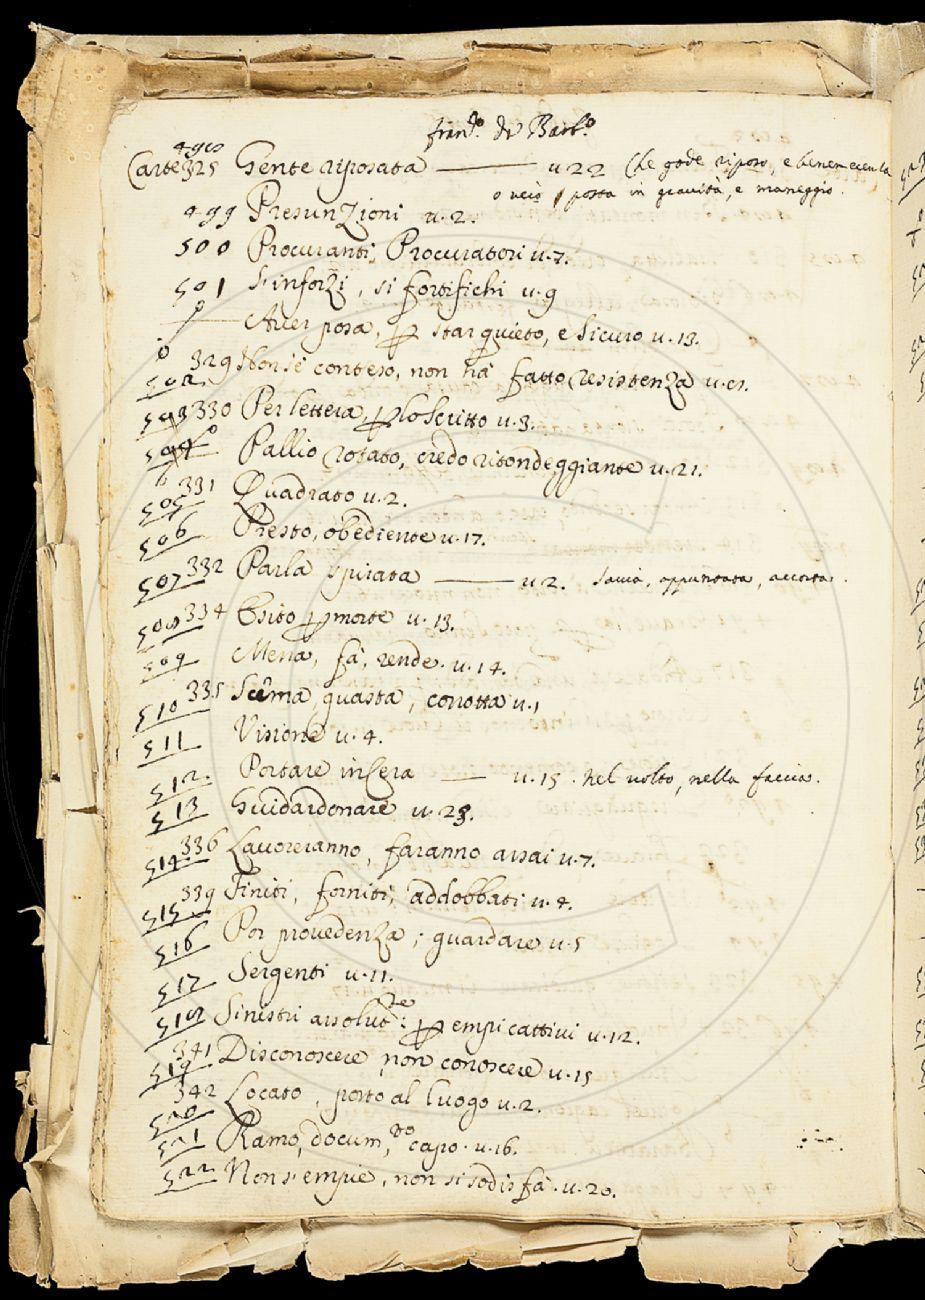 franc.º da Barb.º
498
Carte 325 Gente riposata —— u 22 Che gode riposo, e benemerenza
o uero posta in gravità, e maneggio.
499 Presunzioni u. 2.
500 Procuranti, Procuratori u. 7.
501 S'inforzi, si fortifichi u. 9
Auer posa, p star quieto, e sicuro u. 13.
502 329 Non s'è conteso, non hà fatto resistenza u.
503 330 Per lettera, p lo scritto u. 3.
504 Pallio rotato, credo ritondeggiante u. 21.
505 331 Quadrato u. 2.
506 Presto, obediente u. 17.
507 332 Parla spirata —— u 2. Sauia, appuntata, accorta.
508 334 Esito p morte u. 13.
509 Mena, fà, rende. u. 14.
510 335 Scema, guasta, corrotta u. 1
511 Visione u. 4.
512. Portare in cera —— u. 15. nel uolto, nella faccia.
513 Guidardonare u. 23.
514. 336 Lavoreranno, faranno assai u. 7.
515 339 Finiti, forniti, addobbati u. 4.
516 Por provedenza; guardare u. 5
517 Sergenti u. 11.
518 Sinistri assolut.te: p empi cattivi u. 12.
519 341 Disconoscere non conoscere u. 15
520 342 Locato, posto al luogo u. 2.
521 Ramo, docum.to, capo. u. 16.
522 Non s'empie, non si sodisfà. u. 20.